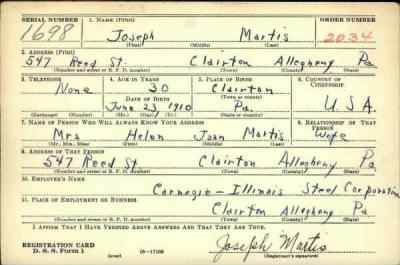 SERIAL NUMBER 1. NAME (Print) ORDER NUMBER
1698 Joseph Martis 2034
(First) (Middle) (Last)
2. ADDRESS (Print)
547 Reed St. Clairton Allegheny Pa
(Number and street or R. F. D. number) (Town) (County) (State)
3. TELEPHONE 4. AGE IN YEARS 5. PLACE OF BIRTH 6. COUNTRY OF CITIZENSHIP
None 30 Clairton
DATE OF BIRTH (Town or county)
June 23 1910 Pa. U.S.A.
(Exchange) (Number) (Mo.) (Day) (Yr.) (State or country)
7. NAME OF PERSON WHO WILL ALWAYS KNOW YOUR ADDRESS 8. RELATIONSHIP OF THAT PERSON
Mrs Helen Joan Martis Wife
(Mr., Mrs., Miss) (First) (Middle) (Last)
9. ADDRESS OF THAT PERSON
547 Reed St Clairton Allegheny Pa
(Number and street or R. F. D. number) (Town) (County) (State)
10. EMPLOYER'S NAME
Carnegie-Illinois Steel Corporation
11. PLACE OF EMPLOYMENT OR BUSINESS
Clairton Allegheny Pa
(Number and street or R. F. D. number) (Town) (County) (State)
I AFFIRM THAT I HAVE VERIFIED ABOVE ANSWERS AND THAT THEY ARE TRUE.
REGISTRATION CARD
D. S. S. Form 1 (over) 16-17105 Joseph Martis
(Registrant's signature)